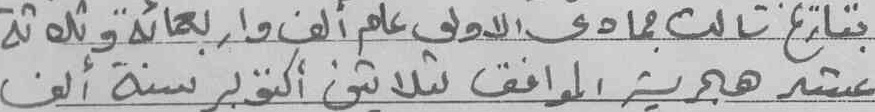 بتاريخ ثالث جمادى الاولى عام ألف واربعمائة وثلاثة
عشر هجرية الموافق لثلاثين أكتوبر سنة ألف